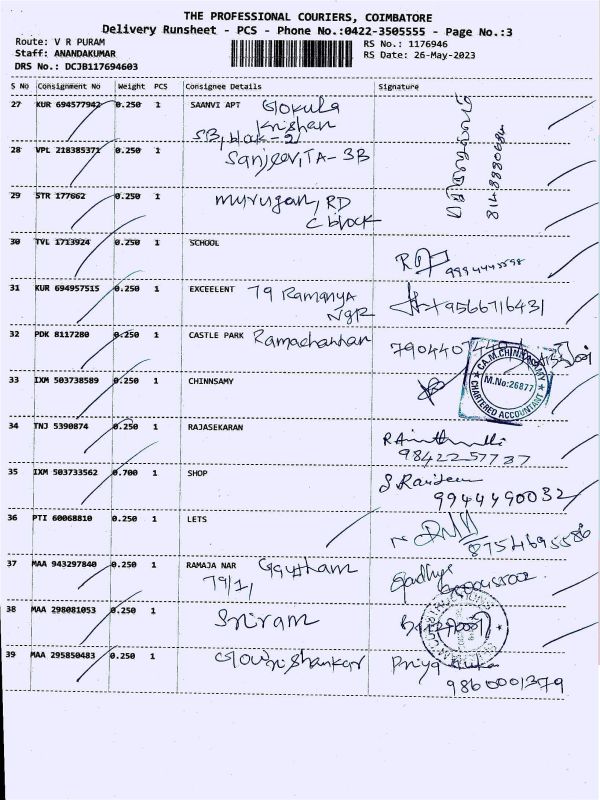 THE PROFESSIONAL COURIERS, COIMBATORE
Delivery Runsheet - PCS - Phone No.:0422-3505555 - Page No.:3
Route: V R PURAM
RS No.: 1176946
Staff: ANANDAKUMAR
RS Date: 26-May-2023
DRS No.: DCJB117694603
S No Consignment No Weight PCS Consignee Details Signature
27 KUR 694577942 0.250 1 SAANVI APT Gokula
Krishan
SB, block-2
28 VPL 218385371 0.250 1 Sanjeev, TA-3B
8148880684
29 STR 177662 0.250 1 Murugan, RD
C block
30 TVL 1713924 0.250 1 SCHOOL
31 KUR 694957515 0.250 1 EXCEELENT 79 Ramanya
NGR
9566716431
32 PDK 8117280 0.250 1 CASTLE PARK Ramachanhan
33 IXM 503738589 0.250 1 CHINNSAMY
CA.M.CHINNSAMY
M.No:26877
CHARTERED ACCOUNTANT
34 TNJ 5390874 0.250 1 RAJASEKARAN
98422 57737
35 IXM 503733562 0.700 1 SHOP
9944490032
36 PTI 60068810 0.250 1 LETS
8754695586
37 MAA 943297840 0.250 1 RAMAJA NAR Gautham
79/1,
38 MAA 298081053 0.250 1 Sriram
39 MAA 295850483 0.250 1 Gowrishankar Priya
9860001379